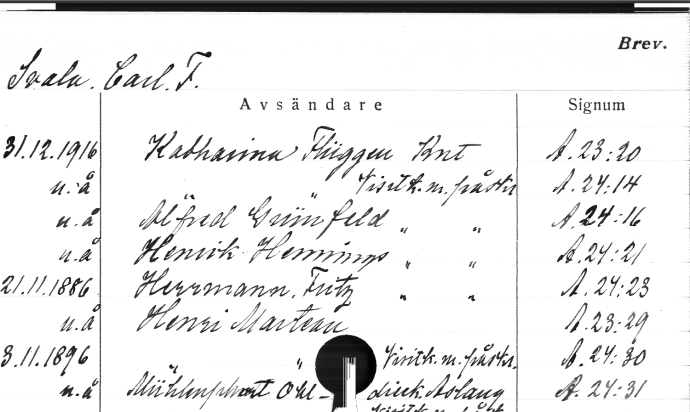 Brev.
Svala. Carl. F.
Avsändare Signum
31.12.1916 Katharina Flüggen Knt A.23:20
u.å " " Visitk.m.påskr A.24:14
u.å Alfred Grünfeld " " A.24:16
u.å Henrik Hennings " " A.24:21
21.11.1886 Herrmann, Fritz " " A.24:23
u.å Henri Marteau A.23:29
3.11.1896 " " Visitk.m.påskr. A.24:30
u.å dieck Aslaug A.24:31